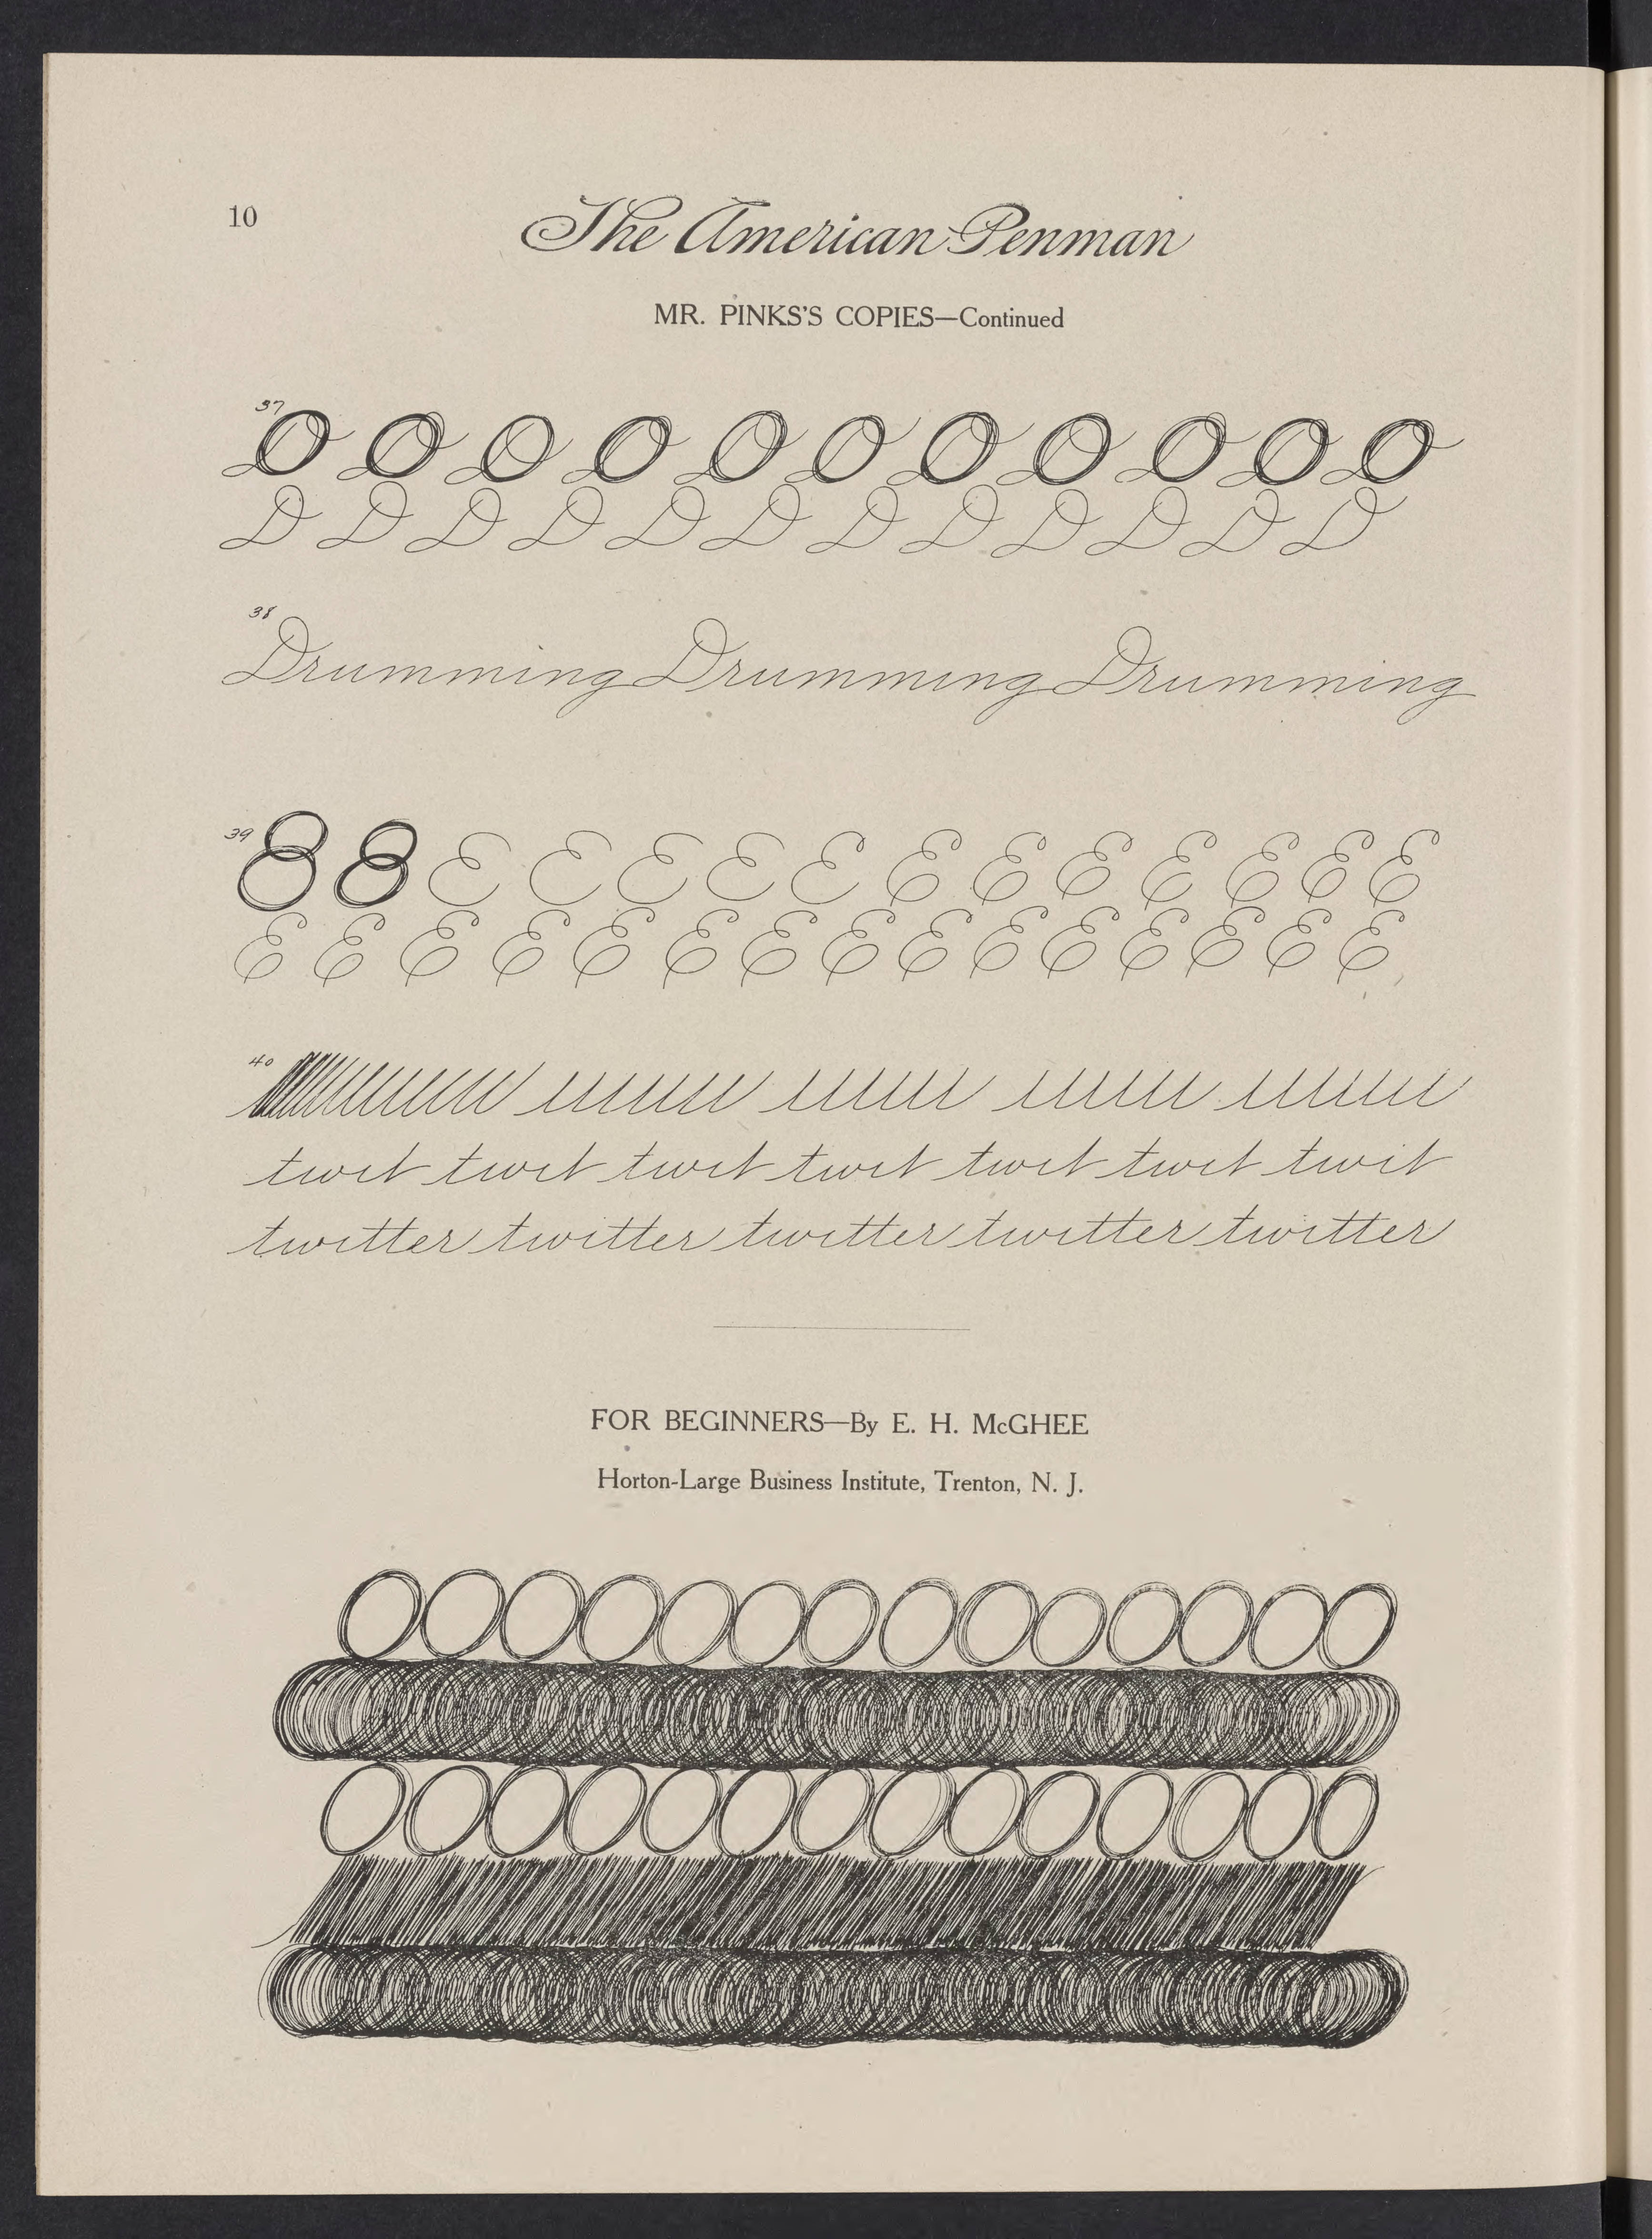 10
The American Penman
MR. PINKS'S COPIES—Continued
37
D D D D D D D D D D D
D D D D D D D D D D D D
38
Drumming Drumming Drumming
39
8 8 E E E E E E E E E E E E
E E E E E E E E E E E E E E E
40
twit twit twit twit twit twit twit
twitter twitter twitter twitter twitter
FOR BEGINNERS—By E. H. McGHEE
Horton-Large Business Institute, Trenton, N. J.